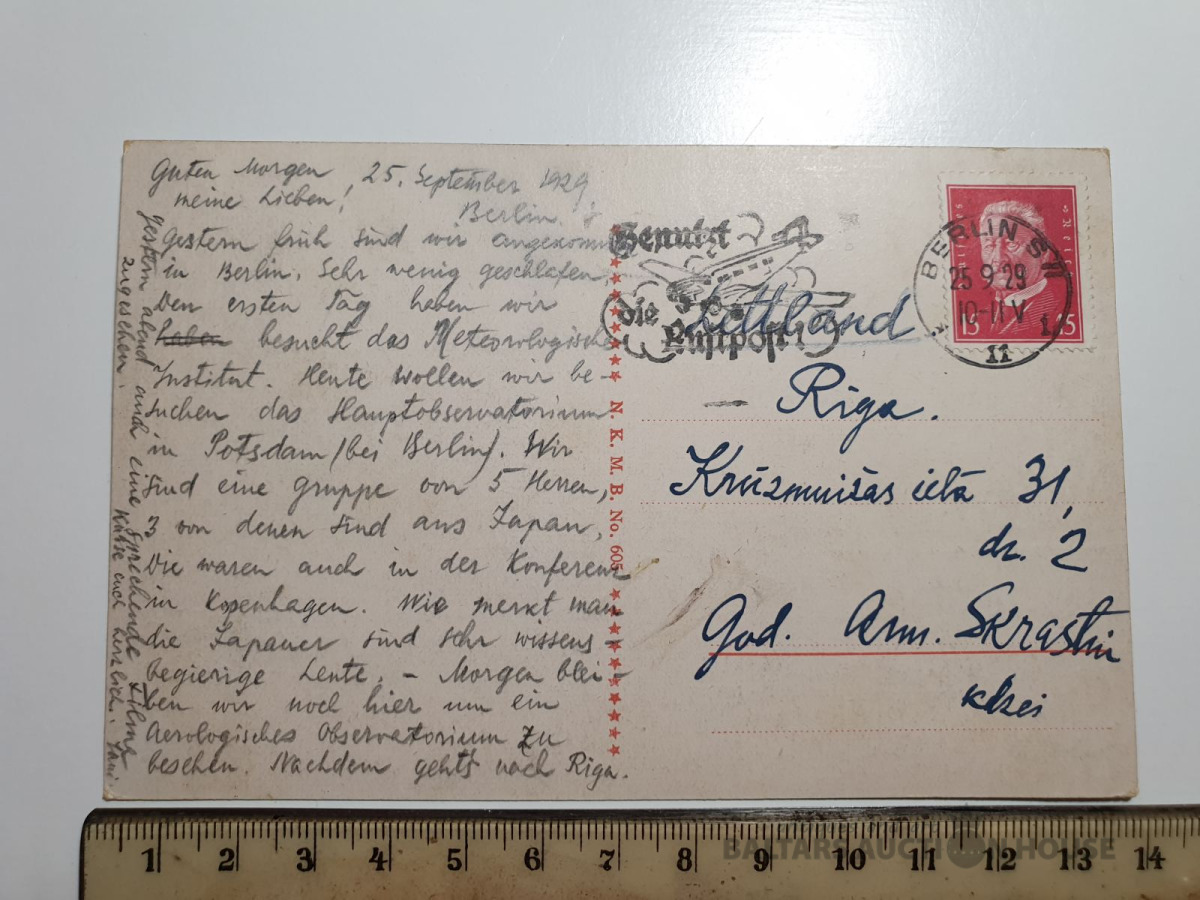 Guten Morgen, 25. September 1929
meine Lieben!
Berlin.
Gestern früh sind wir angekomm
in Berlin. Sehr wenig geschlafen,
Den ersten Tag haben wir
haben besucht das Meteorologische
Institut. Heute wollen wir be-
suchen das Hauptobservatorium
in Potsdam (bei Berlin). Wir
sind eine gruppe von 5 Herren,
3 von denen sind aus Japan,
Die waren auch in der Konferenz
in Kopenhagen. Wie merkt man
die Japaner sind sehr wissens-
begierige Leute. - Morgen blei-
ben wir noch hier um ein
Aerologisches Observatorium zu
besehen. Nachdem gehts nach Riga.
gestern abend auch eine sprechende Filme
zugesehen. Küsse euch herzlich.
N. K. M. B. No. 605
Benutzt
die
Luftpost!
Deutsches Reich
15 15
BERLIN SW
25 9 29
10-11 V
11
Lettland
Riga.
Krūzmuižas ielā 31,
dz. 2
God. Arm. Skrastiņ
kdzei
1 2 3 4 5 6 7 8 9 10 11 12 13 14
BALTARS AUCTION HOUSE